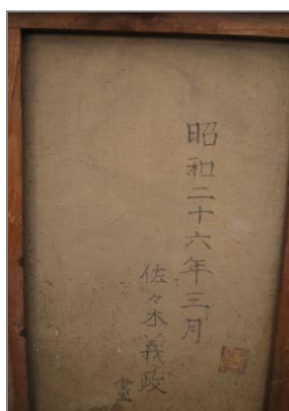 昭和二十六年三月
佐々木義政
画